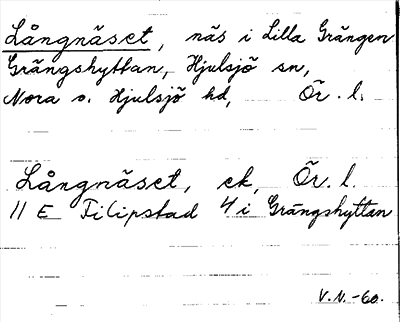 Långnäset, näs i Lilla Grängen
Grängshyttan, Hjulsjö sn,
Nora o. Hjulsjö hd, Ör. l.
Långnäset, ek, Ör. l.
11 E Filipstad 4 i Grängshyttan
V.N.-60.